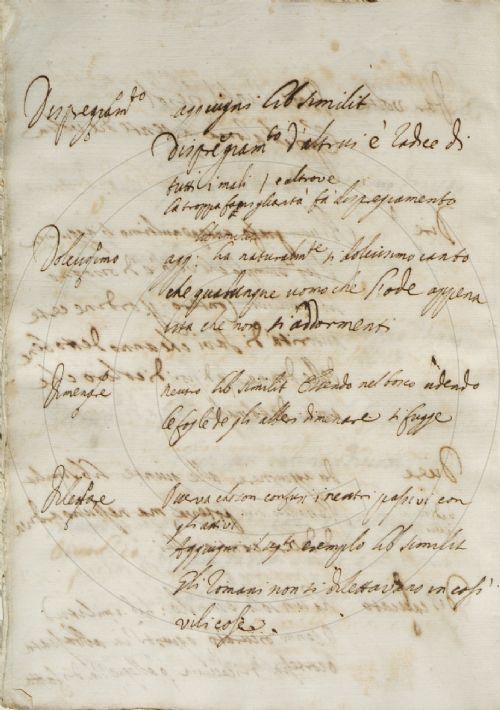 Dispregiam.to aggiugni lib similit
Dispregiam.to d'altrui è radice di
tutti i mali / e altrove
la troppa famigliarità fa dispregiamento
Dolcissimo agg: ha naturalm.te si dolcissimo canto
che qualunque uomo che l'ode appena
sta che non si addormenti
Dimenare neutro lib similit Essendo nel bosco udendo
le foglie degli alberi dimenare si fugge
Dilettare confusi i neutri passivi con
gli attivi
Aggiugni esemplo lib similit
Gli Romani non si dilettavano in così
vili cose.